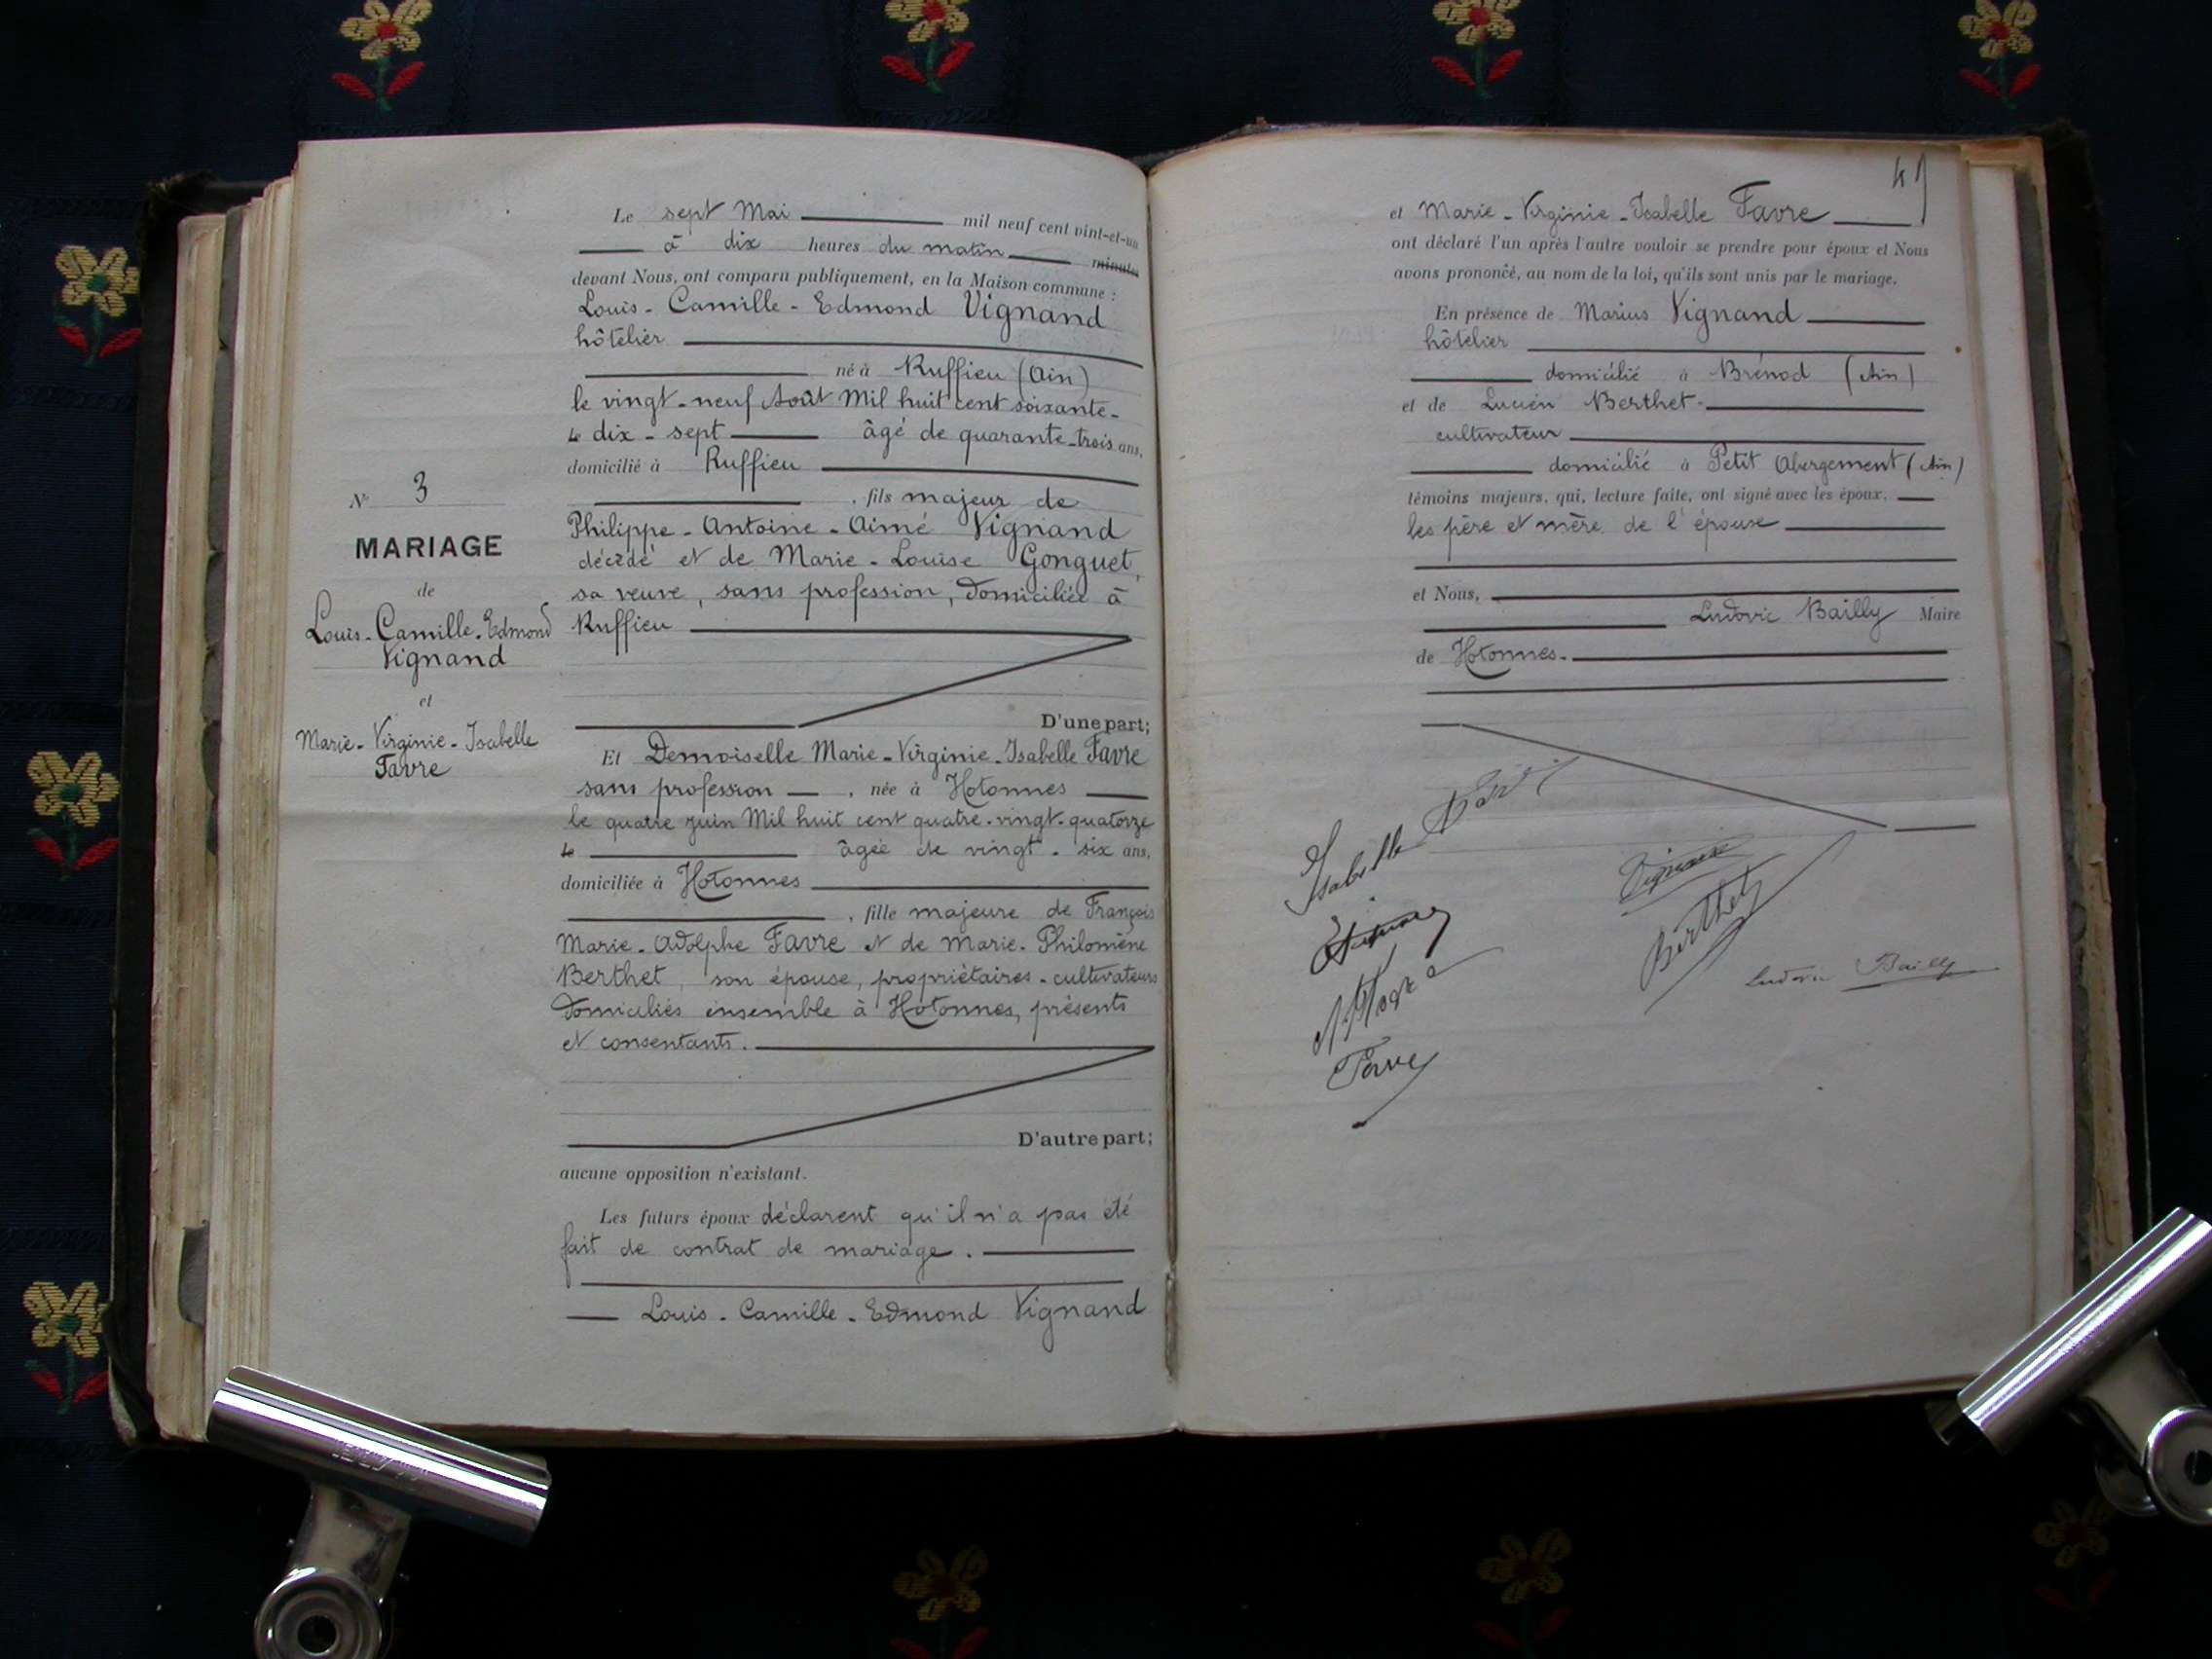 N° 3
MARIAGE
de
Louis-Camille-Edmond
Vignand
et
Marie-Virginie-Isabelle
Favre
Le sept Mai mil neuf cent vint-et-un
à dix heures du matin minutes
devant Nous, ont comparu publiquement, en la Maison commune :
Louis-Camille-Edmond Vignand
hôtelier
né à Ruffieu (Ain)
le vingt-neuf Août Mil huit cent soixante-
le dix-sept âgé de quarante-trois ans,
domicilié à Ruffieu
, fils majeur de
Philippe-Antoine-Aimé Vignand
décédé et de Marie-Louise Gonguet,
sa veuve, sans profession, domiciliée à
Ruffieu
D'une part;
Et Demoiselle Marie-Virginie-Isabelle Favre
sans profession , née à Hotonnes
le quatre juin Mil huit cent quatre-vingt-quatorze
le âgée de vingt-six ans,
domiciliée à Hotonnes
, fille majeure de François
Marie-Adolphe Favre et de Marie-Philomène
Berthet, son épouse, propriétaires-cultivateurs
domiciliés ensemble à Hotonnes, présents
et consentants.
D'autre part;
aucune opposition n'existant.
Les futurs époux déclarent qu'il n'a pas été
fait de contrat de mariage.
Louis-Camille-Edmond Vignand
et Marie-Virginie-Isabelle Favre
ont déclaré l'un après l'autre vouloir se prendre pour époux et Nous
avons prononcé, au nom de la loi, qu'ils sont unis par le mariage.
En présence de Marius Vignand
hôtelier
domicilié à Brénod (Ain)
et de Lucien Berthet
cultivateur
domicilié à Petit Abergement (Ain)
témoins majeurs, qui, lecture faite, ont signé avec les époux,
les père et mère de l'épouse
et Nous,
Ludovic Bailly Maire
de Hotonnes.
Isabelle
Berthet
Favre
Ludovic Bailly